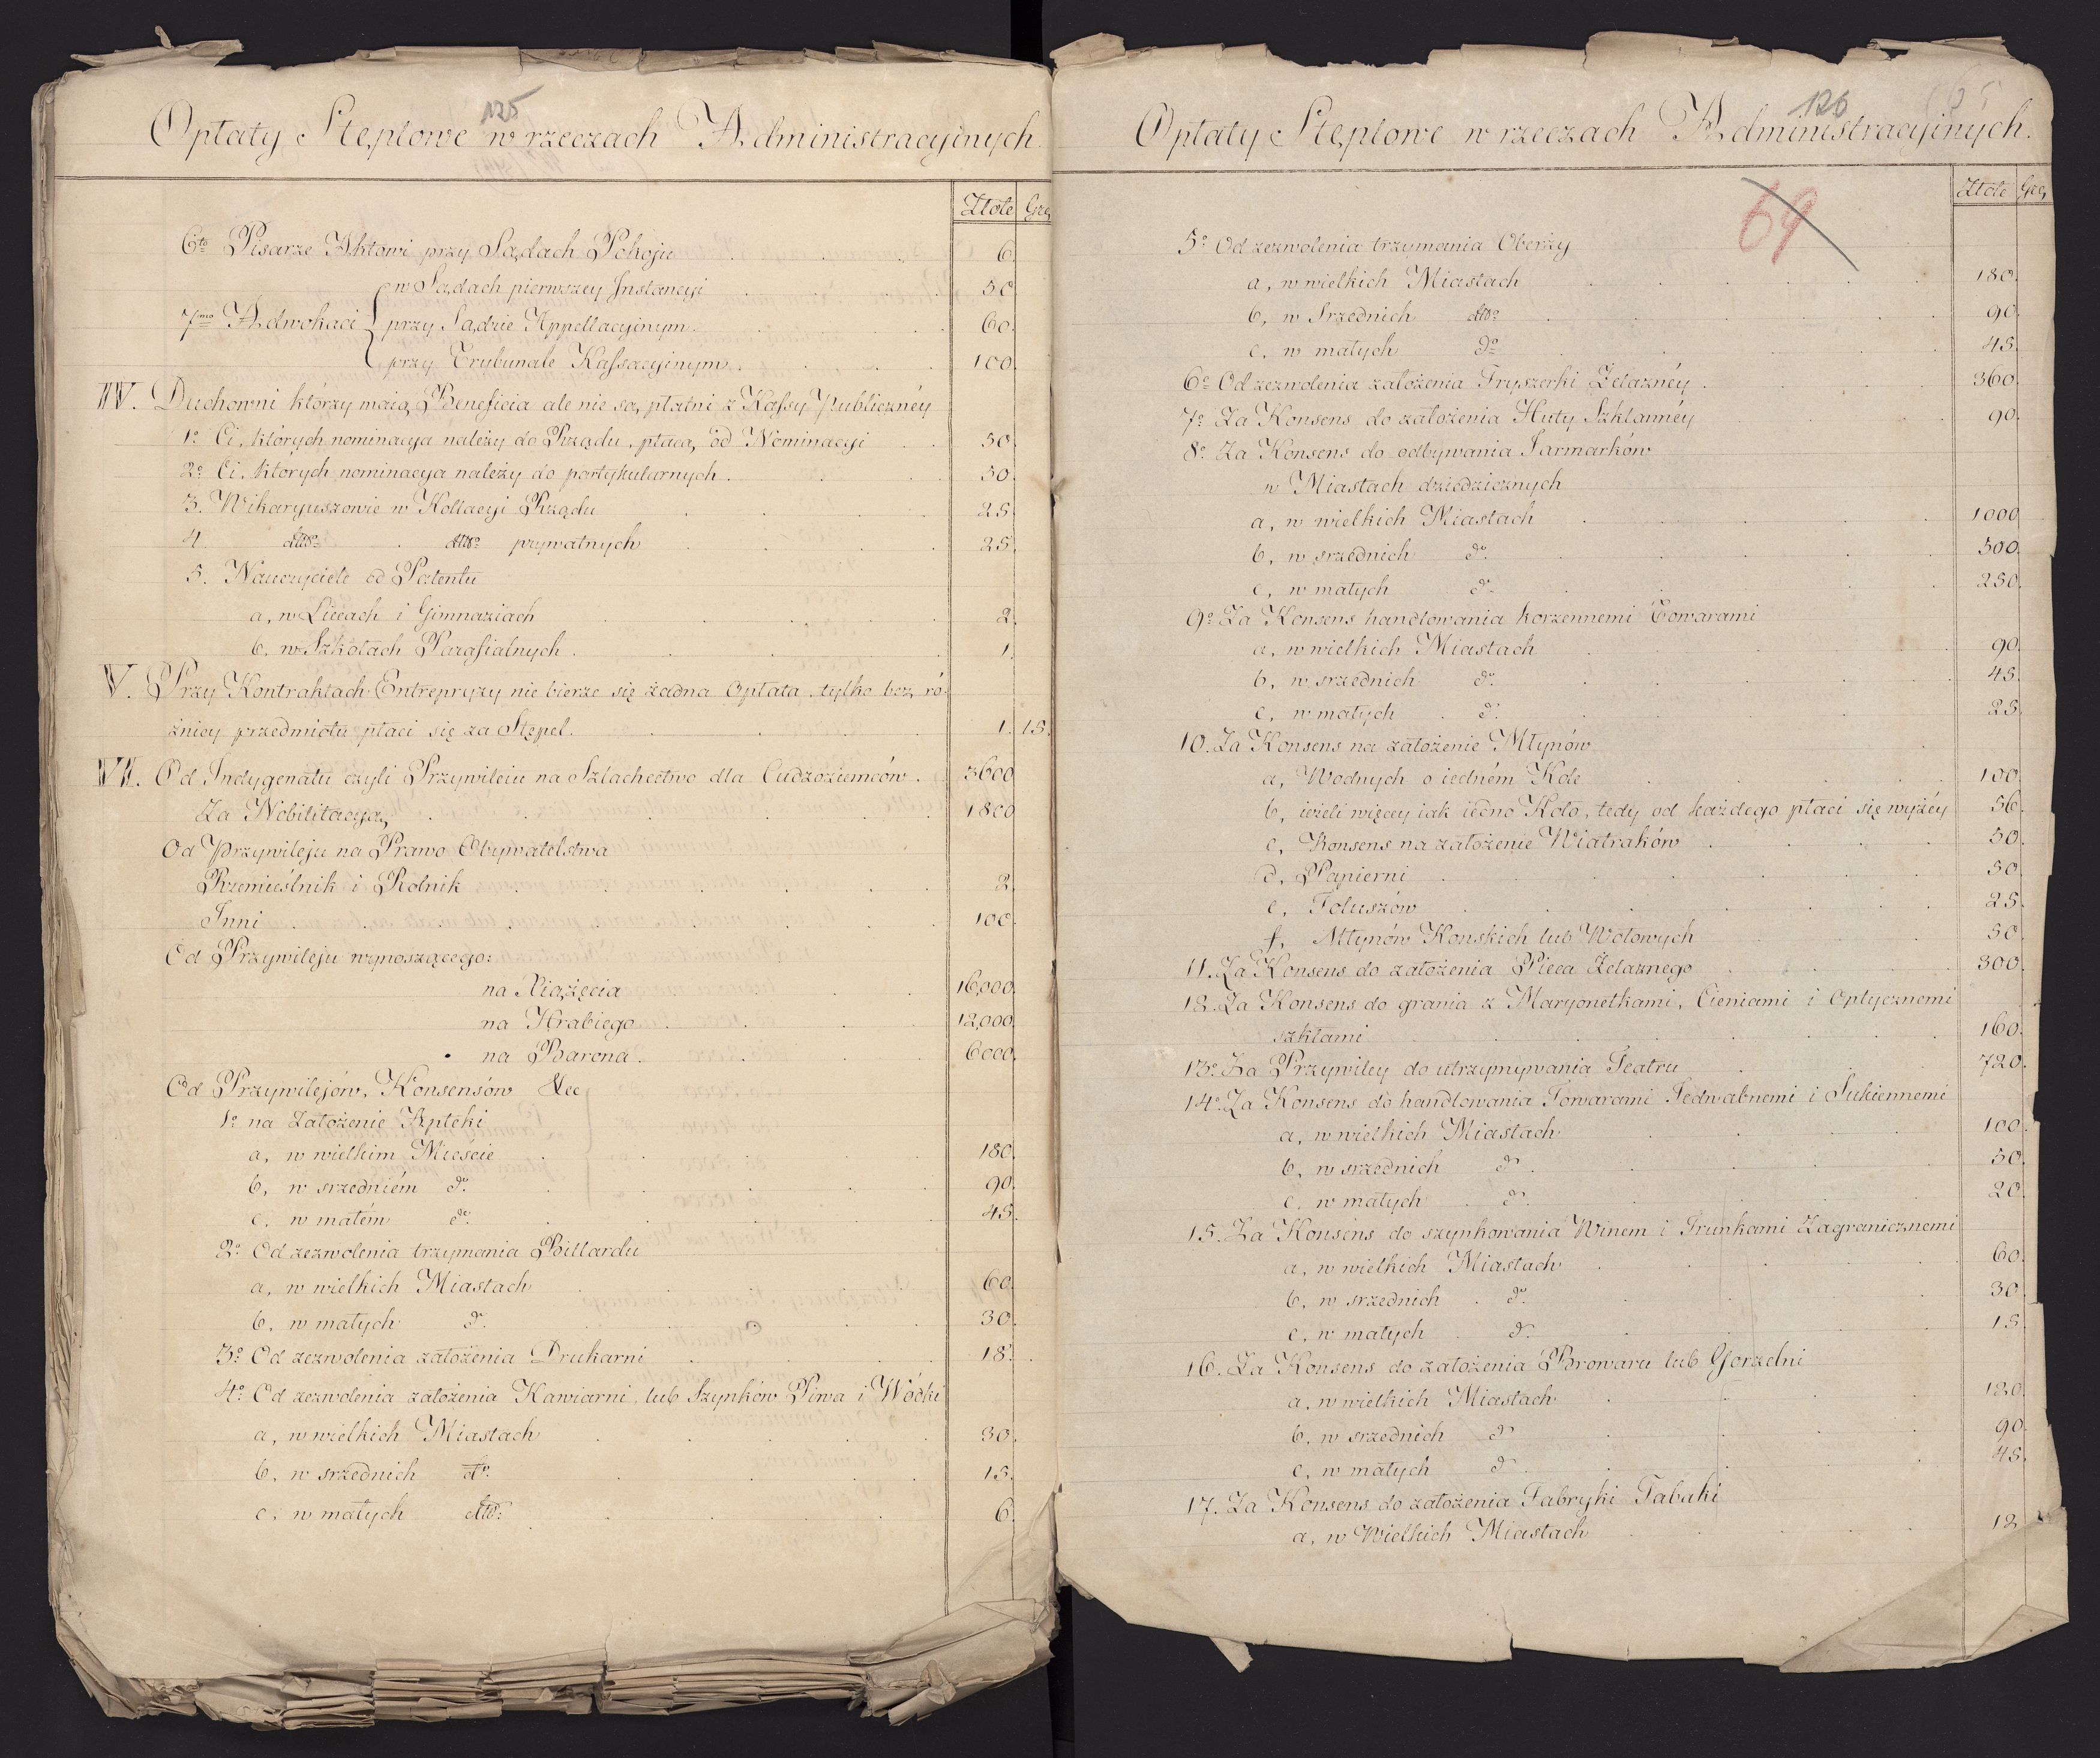 125
Opłaty Stęplowe w rzeczach Administracyjnych.
Złote Gro,
6to Pisarze Aktowi przy Sądach Pokoju 6.
w Sądach pierwszey Instancyi 50.
7mo Adwokaci przy Sądzie Appellacyjnym. 60.
przy Trybunale Kassacyjnym. 100.
IV. Duchowni którzy maią Beneficia ale nie są płatni z Kassy Publicznéy
1o Ci, których nominacya należy do Rządu, płacą od Nominacyi 50.
2o Ci, których nominacya należy do partykularnych. 50.
3. Wikaryuszowie w Kollacyi Rządu 25.
4. ditto . ditto prywatnych 25.
5. Nauczyciele od Patentu
a, w Liceach i Gimnaziach 2.
b, w Szkołach Parafialnych. 1.
V. Przy Kontraktach Entrepryzy nie bierze się żadna Opłata, tylko bez ró-
żnicy przedmiotu płaci się za Stępel. 1. 15.
VI. Od Indygenatu czyli Przywileiu na Szlachectwo dla Cudzoziemców. 3600
Za Nobilitacyą, 1800
Od Przywileju na Prawo Obywatelstwa
Rzemieślnik i Rolnik 2.
Inni 100.
Od Przywileju wynoszącego:
na Xiążęcia 16,000.
na Hrabiego 12,000.
na Barona. 6000.
Od Przywilejów, Konsensów &ce
1o na Założenie Apteki
a, w wielkim Mieście 180.
b, w srzedniém do. 90.
c, w małém do. 45.
2o Od zezwolenia trzymania Billardu
a, w wielkich Miastach 60.
b, w małych do. 30.
3o Od zezwolenia założenia Drukarni 18.
4o Od zezwolenia założenia Kawiarni, lub Szynków Piwa i Wódki
a, w wielkich Miastach 30.
b, w srzednich do. 15.
c, w małych ditto. 6.
126
Opłaty Stęplowe w rzeczach Administracyjnych.
69
Złote Gro,
5o Od zezwolenia trzymania Oberży
a, w wielkich Miastach 180.
b, w Srzednich ditto 90.
c, w małych do 45.
6o Od zezwolenia założenia Fryszerki Żelaznéy. 360.
7o Za Konsens do założenia Huty Szklannéy 90.
8o Za Konsens do odbywania Jarmarków
w Miastach dziedzicznych
a, w wielkich Miastach 1000
b, w srzednich do. 500.
c, w małych do. 250.
9o Za Konsens handlowania korzennemi Towarami
a, w wielkich Miastach 90.
b, w srzednich do. 45.
c, w małych do. 25.
10. Za Konsens na założenie Młynów
a, Wodnych o iedném Kole 100.
b, ieżeli więcey iak iedno Koło, tedy od każdego płaci się wyżéy 56.
c, Konsens na założenie Wiatraków 50.
d, Papierni 50.
e, Foluszów 25.
f, Młynów Konskich lub Wołowych 50.
11. Za Konsens do założenia Pieca Żelaznego 300.
12. Za Konsens do grania z Maryonetkami, Cieniami i Optycznemi
szkłami 160.
13o. Za Przywiley do utrzymywania Teatru 720.
14o. Za Konsens do handlowania Towarami Jedwabnemi i Sukiennemi
a, w wielkich Miastach 100.
b, w srzednich do. 50.
c, w małych do. 20.
15. Za Konsens do szynkowania Winem i Trunkami Zagranicznemi
a, w wielkich Miastach 60.
b, w srzednich do. 30.
c, w małych do. 15.
16. Za Konsens do założenia Browaru lub Gorzelni
a, w wielkich Miastach 180.
b, w srzednich do 90.
c, w małych do. 45.
17. Za Konsens do założenia Fabryki Tabaki
a, w Wielkich Miastach 12